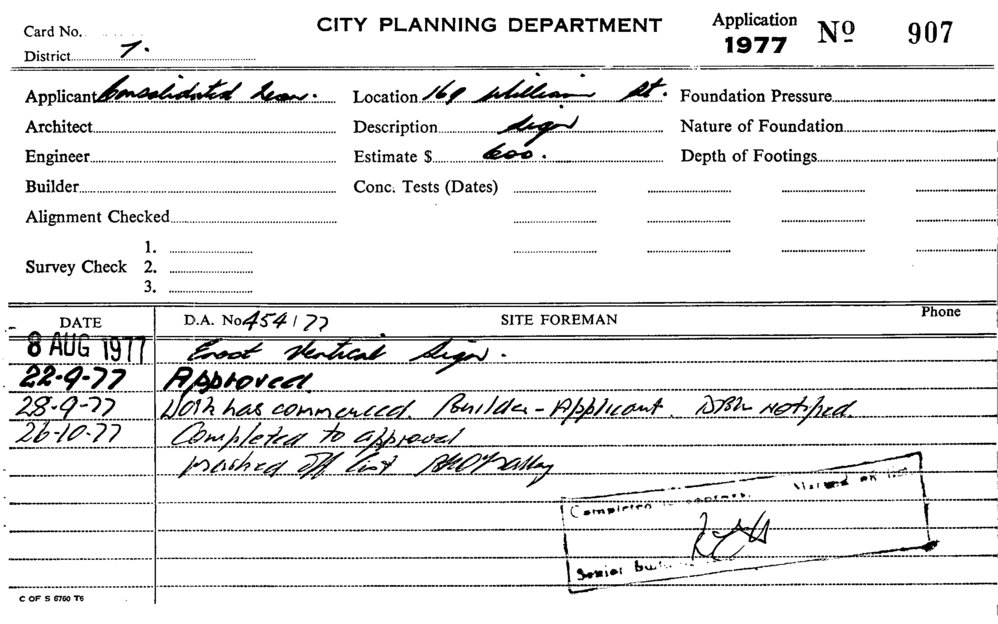 CITY PLANNING DEPARTMENT
Application 1977 Nº 907
Card No.
District 7.
Applicant Consolidated Neon. Location 169 William St. Foundation Pressure
Architect Description Sign Nature of Foundation
Engineer Estimate $ 600. Depth of Footings
Builder Conc. Tests (Dates)
Alignment Checked
1.
Survey Check 2.
3.
DATE D.A. No 454/77 SITE FOREMAN Phone
8 AUG 1977 Erect Vertical Sign.
22-9-77 Approved
28-9-77 Work has commenced. Builder - Applicant. notified.
26-10-77 Completed to approval
marked off list
Completed to approval. Marked off list.
Senior
C OF S 6760 T6